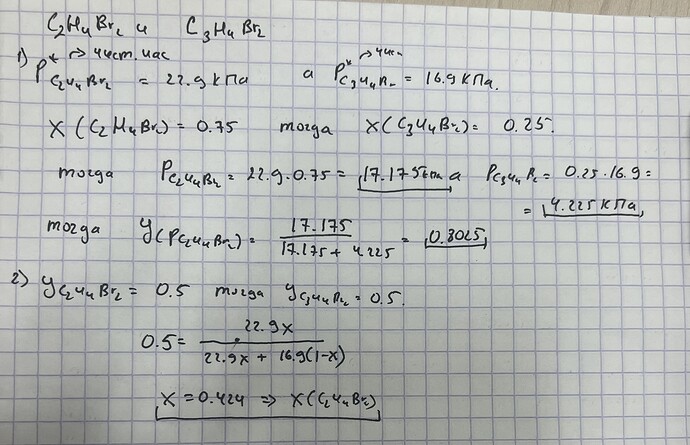 C₂H₄Br₂ и C₃H₄Br₂
1) P* → чист. час
C₂H₄Br₂ = 22.9 кПа а P* → чис C₃H₄Br = 16.9 кПа.
X(C₂H₄Br₂) = 0.75 тогда X(C₃H₄Br₂) = 0.25.
тогда P C₂H₄Br₂ = 22.9 · 0.75 = 17.175 кПа а P C₃H₄Br = 0.25 · 16.9 =
= 4.225 кПа
тогда y(P C₂H₄Br₂) = 17.175 / 17.175 + 4.225 = 0.8025
2) y C₂H₄Br₂ = 0.5 тогда y C₃H₄Br₂ = 0.5.
0.5 = 22.9x / 22.9x + 16.9(1-x)
X = 0.424 ⇒ X(C₂H₄Br₂)